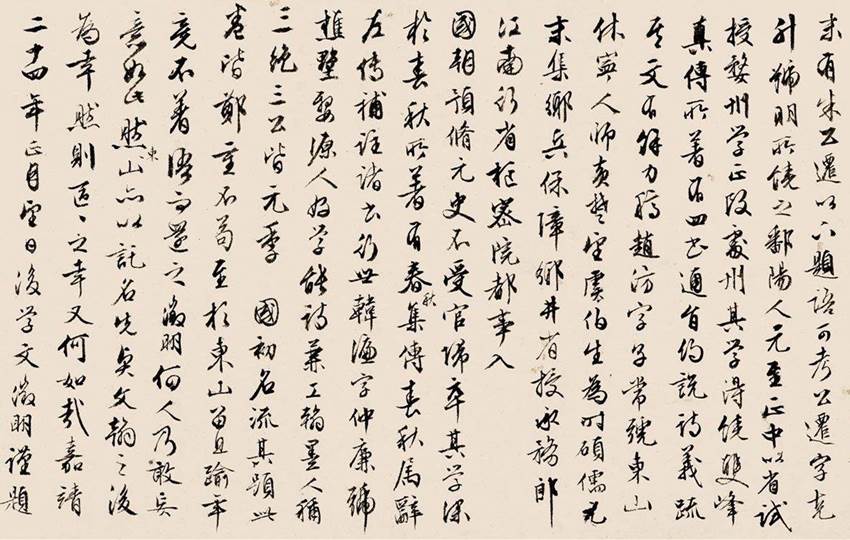 末有朱公遷以下題語可考公遷字克
升號明所饒之鄱陽人元至正中以省試
授婺州学正改處州其学得饒雙峰
真傳所著有四書通旨約說詩義疏
文有趙汸字子常號東山
休寧人師黃楚望虞伯生為時碩儒元
末集鄉兵保障鄉井省授承務郎
江南行省樞密院都事入
國朝預脩元史不受官歸卒其学深
於春秋所著有春秋集傳春秋属辭
左傳補註諸書行世韓濂字仲廉號
樵墅婺源人好学能詩兼工翰墨人稱
三絕三公皆元季 國初名流其題此
卷皆鄭重不苟至於東山留且踰年
竟不著語而還之徵明何人乃敢與
意如此然東山亦以託名先文翰之後
為幸然則區〻之幸又何如哉嘉靖
二十四年正月望日後学文徵明謹題